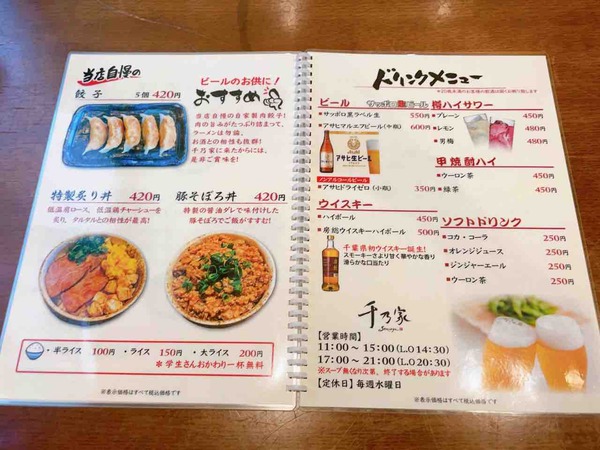 当店自慢の
餃子 5個 420円
ビールのお供に!
おすすめ
当店自慢の自家製肉餃子!
肉の旨みがたっぷり詰まって、
ラーメンは勿論、
お酒との相性も抜群!
千乃家に来たからには、
是非ご賞味を!
特製炙り丼 420円
低温肩ロース、低温鶏チャーシューを
炙り、タルタルとの相性が最高!
豚そぼろ丼 420円
特製の醤油ダレで味付けした
豚そぼろでご飯がすすむ!
・半ライス 100円 ・ライス 150円 ・大ライス 200円
＊学生さんおかわり一杯無料
※表示価格はすべて税込価格です
ドリンクメニュー
※20歳未満のお客様の飲酒は固くお断り致します
ビール サッポロ生ビール
サッポロ黒ラベル生 550円
アサヒマルエフビール(中瓶) 600円
アサヒ生ビール
ノンアルコールビール
アサヒドライゼロ(小瓶) 350円
ウイスキー
ハイボール 450円
房総ウイスキーハイボール 500円
千葉県初ウイスキー誕生!
スモーキーさより甘く華やかな香り
滑らかな口当たり
樽ハイサワー
プレーン 450円
レモン 480円
男梅 480円
甲焼酎ハイ
ウーロン茶 450円
緑茶 450円
ソフトドリンク
コカ・コーラ 250円
オレンジジュース 250円
ジンジャーエール 250円
ウーロン茶 250円
千乃家
【営業時間】
11:00～15:00(L.O 14:30)
17:00～21:00(L.O 20:30)
※スープ無くなり次第、終了する場合があります
【定休日】毎週水曜日
※表示価格はすべて税込価格です